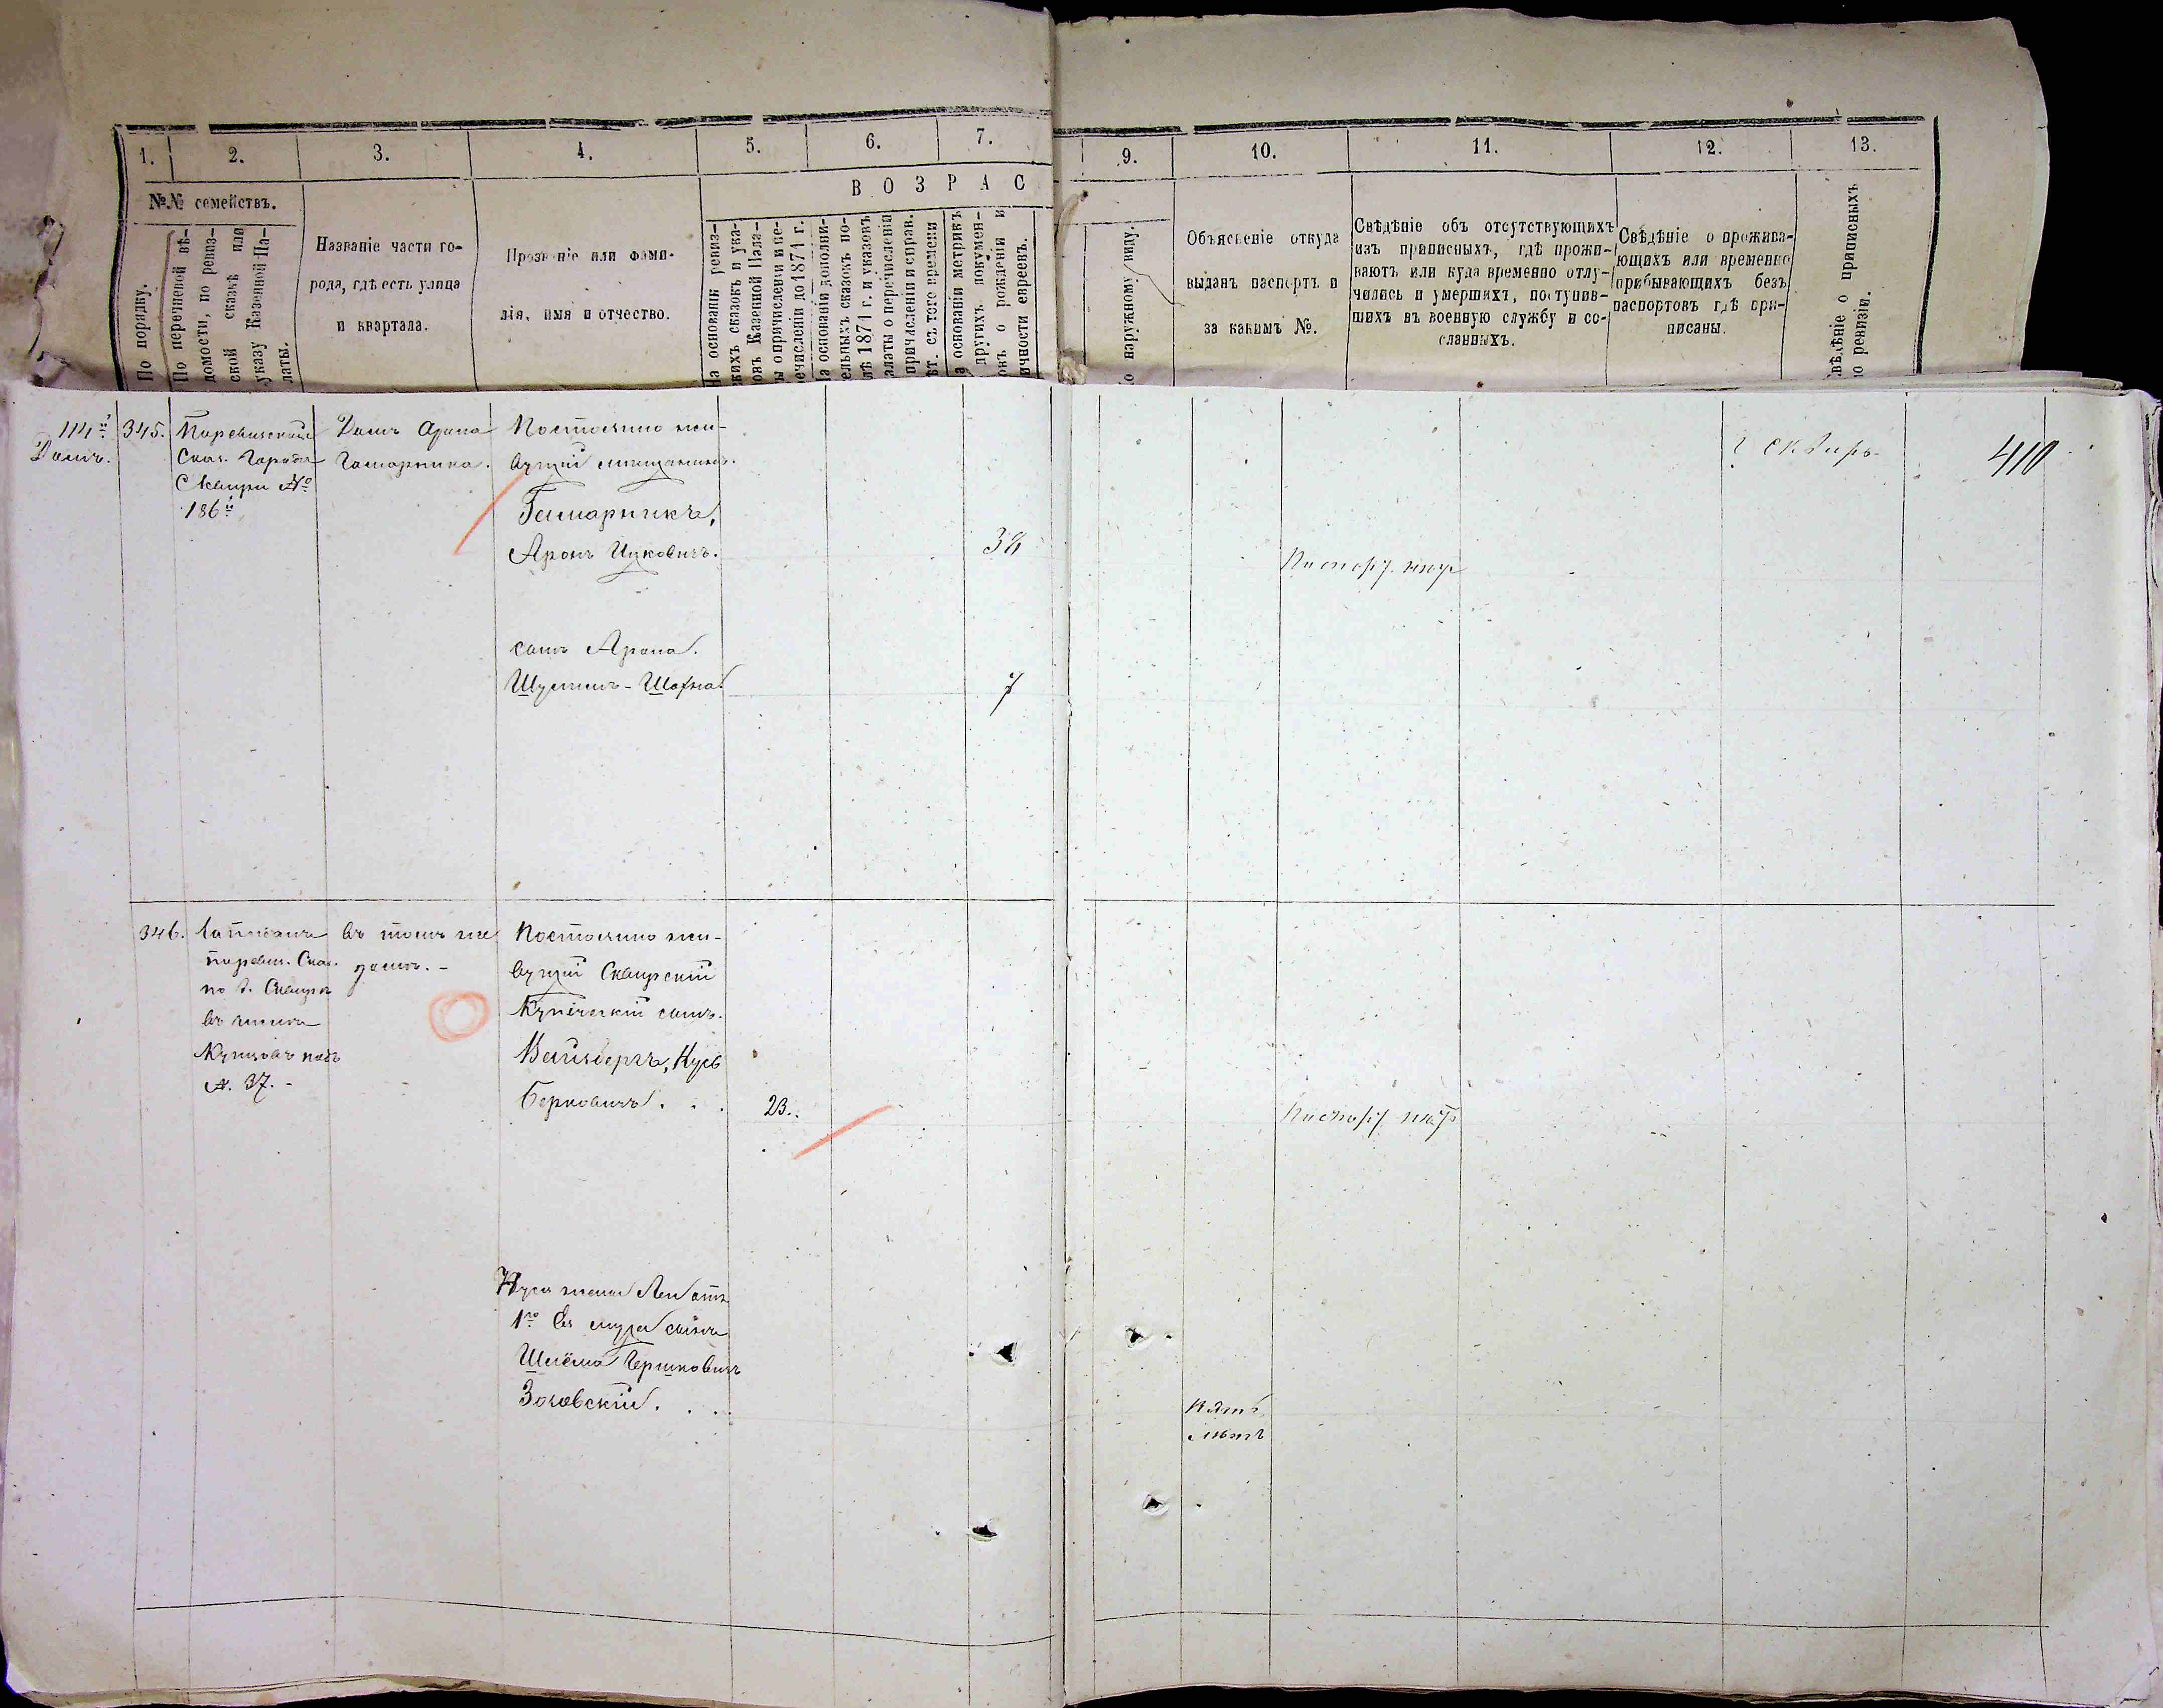 1.
2.
3.
4.
5.
6.
7.
9.
10.
11.
12.
13.
№№ семействъ.
По порядку.
По перечневой вѣ-
домости, по ревиз-
ской сказкѣ или
указу Казенной Па-
латы.
Названіе части го-
рода, гдѣ есть улица
и квартала.
Прозваніе или фами-
лія, имя и отчество.
ВОЗРАС
На основаніи ревиз-
скихъ сказокъ и ука-
зовъ Казенной Пала-
ты о причисленіи и пе-
речисленіи до 1871 г.
На основаніи дополни-
тельныхъ сказокъ по-
слѣ 1871 г. и указовъ
Палаты о перечисленіи
причисленіи и справ.
лѣт. съ того времени
На основаніи метрикъ
другихъ докумен-
товъ о рожденіи и
личности евреевъ.
По наружному виду.
Объясненіе откуда
выданъ паспортъ и
за какимъ №.
Свѣдѣніе объ отсутствующихъ
изъ приписныхъ, гдѣ прожи-
ваютъ или куда временно отлу-
чились и умершихъ, поступив-
шихъ въ военную службу и со-
сланныхъ.
Свѣдѣніе о прожива-
ющихъ или временно
прибывающихъ безъ
паспортовъ гдѣ при-
писаны.
Свѣдѣніе о приписныхъ
по ревизіи.
114й
Домъ.
345.
Ска. Города
Сквиры №
186й
Домъ Арона
Гамарника.
Постоянно жи-
вущій мищанинъ.
Гамарникъ,
Аронъ Ицковичъ.
38
сынъ Арона.
Шулимъ-Шахна
7
г Сквирѣ
410
346.
ревиз. Ска.
по г. Сквирѣ
въ числѣ
Купцовъ подъ
№. 37.-
въ томъ же
домѣ.-
Постоянно жи-
вущій Сквирскій
Купеческій сынъ.
Вайнбергъ, Нусь
Берковичъ. . .
23.
Нуся жена Леи отъ
1го Ея мужа сынъ
Шлёма Гершковичъ
Зозовскій. . .
Пять
лѣтъ